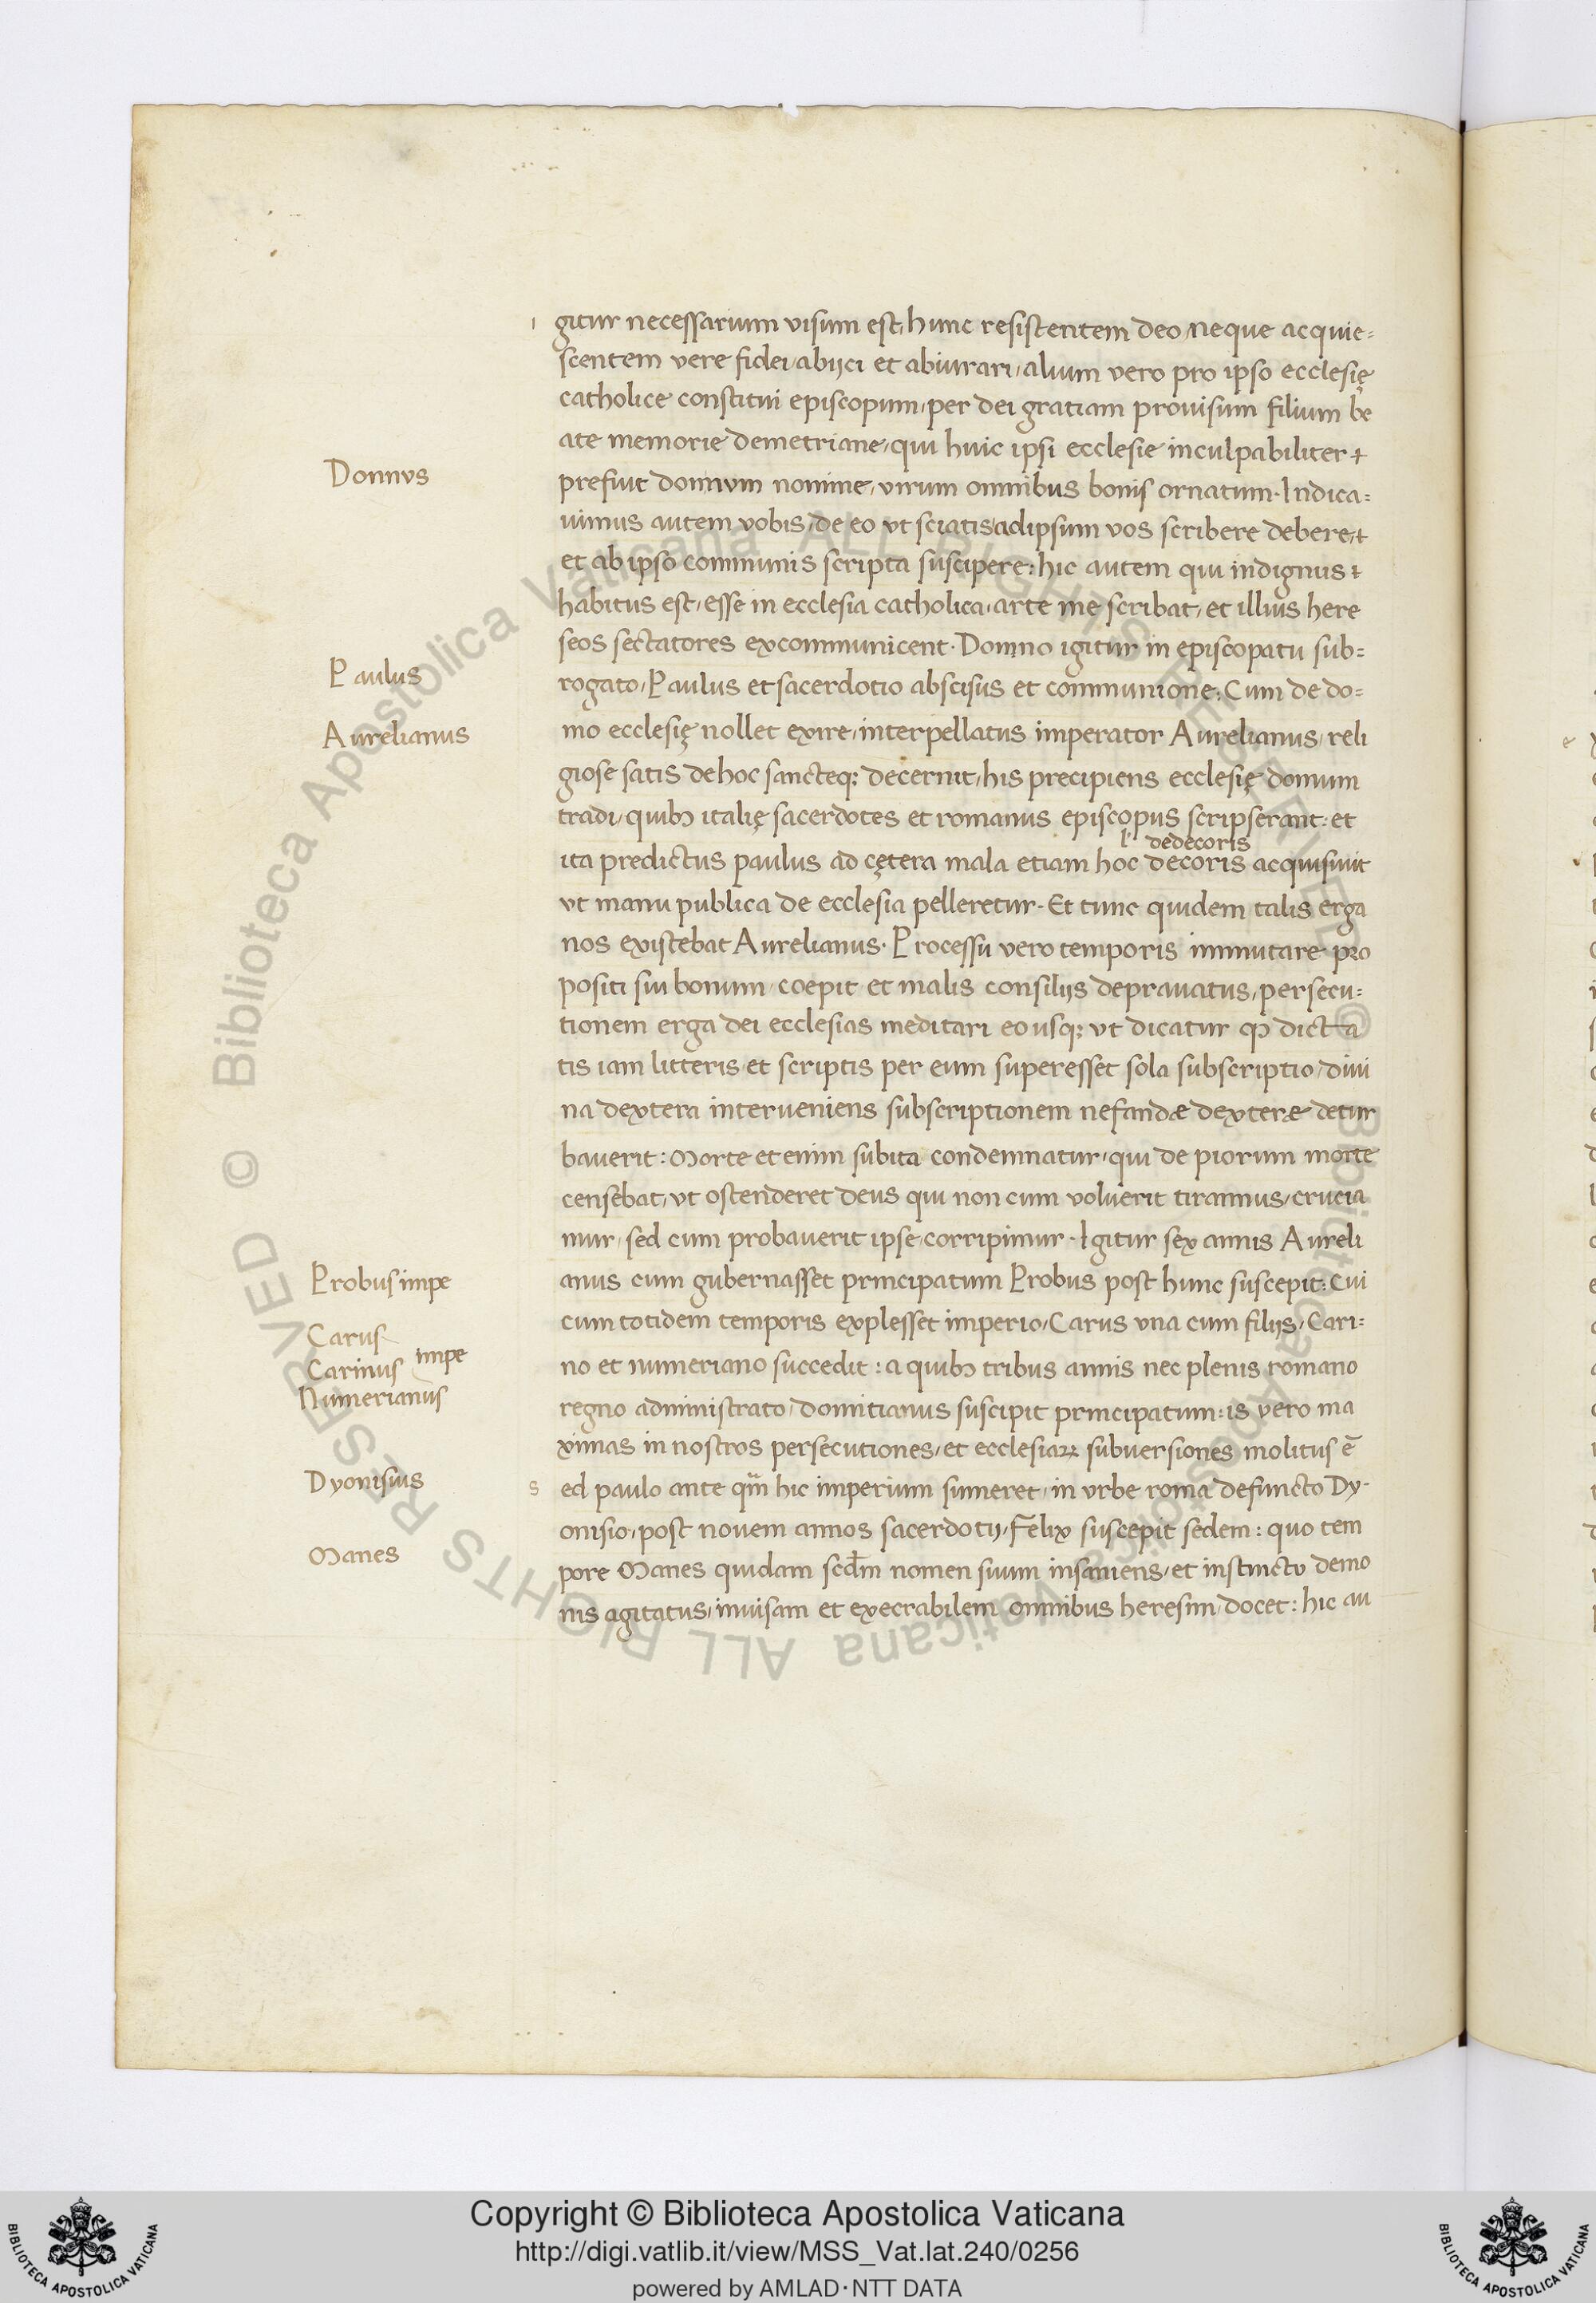 i gitur necessarium visum est, hunc resistentem deo, neque acquie=
scentem vere fidei, abijci et abiurari, alium vero pro ipso ecclesię
catholice constitui episcopum, per dei gratiam prouisum filium be
ate memorie demetriane, qui huic ipsi ecclesie inculpabiliter
Donnvs
prefuit domnvm nomine, virum omnibus bonis ornatum. Indica=
uimus autem vobis, de eo vt sciatis ad ipsum vos scribere debere,
et ab ipso communis scripta suscipere: hic autem qui indignus
habitus est, esse in ecclesia catholica, arte me scribat, et illius here
seos sectatores excommunicent. Domno igitur in episcopatu sub=
Paulus
rogato, Paulus et sacerdotio abscisus et communione: Cum de do=
Aurelianus
mo ecclesię nollet exire, interpellatus imperator Aurelianus, reli
giose satis de hoc sancteq; decernit, his precipiens ecclesię domum
tradi, quibꝫ italię sacerdotes et romanus episcopus scripserant: et
l' dedecoris
ita predictus paulus ad cętera mala etiam hoc decoris acquisiuit
vt manu publica de ecclesia pelleretur. Et tunc quidem talis erga
nos existebat Aurelianus. Processu vero temporis immutare pro
positi sui bonum coepit et malis consilijs deprauatus, persecu=
tionem erga dei ecclesias meditari eo usq; vt dicatur ꝙ dicta
tis iam litteris et scriptis per eum superesset sola subscriptio, diui
na dextera interueniens subscriptionem nefandæ dexteræ detur
bauerit: Morte et enim subita condemnatur, qui de piorum morte
censebat, vt ostenderet deus qui non cum voluerit tirannus, crucia
mur, sed cum probauerit ipse corripimur. Igitur sex annis Aureli
Probus impe
anus cum gubernasset principatum Probus post hunc suscepit: Cui
Carus
cum totidem temporis explesset imperio, Carus vna cum filijs, Cari=
Carinus impe
no et numeriano succedit: a quibꝫ tribus annis nec plenis romano
Numerianus
regno administrato, domitianus suscipit principatum: is vero ma
ximas in nostros persecutiones, et ecclesiaꝝ subuersiones molitus ē
Dyonisius
s ed paulo ante qm̄ hic imperium sumeret, in vrbe roma defuncto Dy-
onisio, post nouem annos sacerdotij, Felix suscepit sedem: quo tem
Manes
pore Manes quidam scdm̄ nomen suum insaniens, et instinctv demo
nis agitatus, inuisam et execrabilem omnibus heresim, docet: hic au
Copyright © Biblioteca Apostolica Vaticana
http://digi.vatlib.it/view/MSS_Vat.lat.240/0256
powered by AMLAD·NTT DATA
BIBLIOTECA APOSTOLICA VATICANA
BIBLIOTECA APOSTOLICA VATICANA
© Biblioteca Apostolica Vaticana ALL RIGHTS RESERVED
© Biblioteca Apostolica Vaticana ALL RIGHTS RESERVED